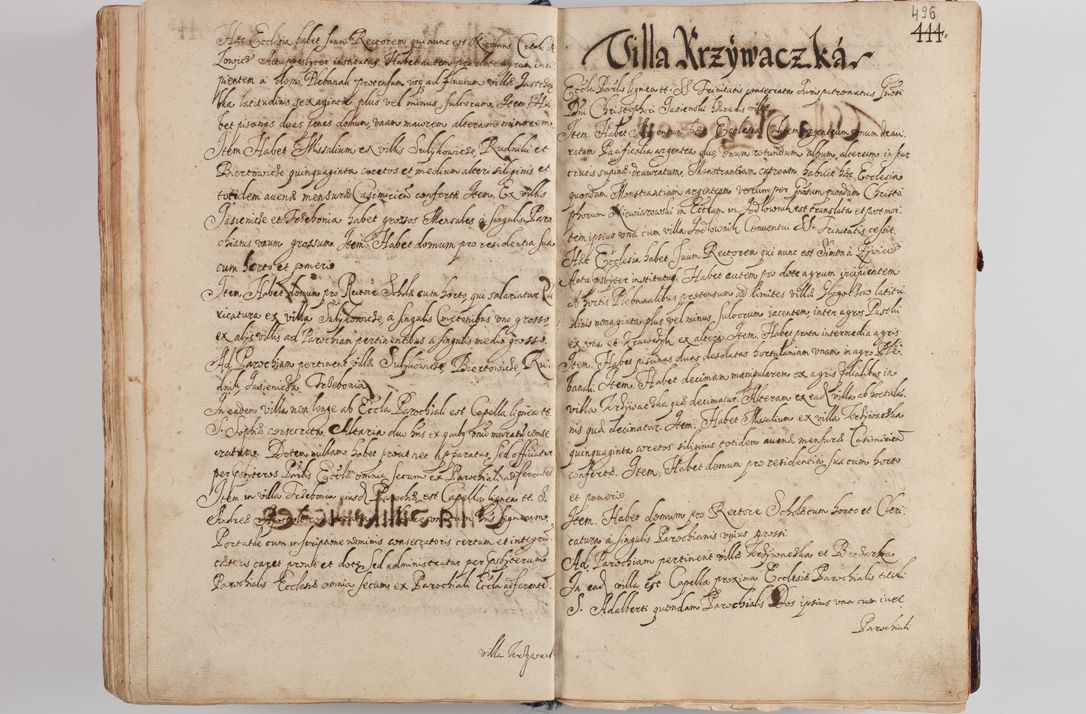 Hæc Ecclesia habet suum Rectorem qui nunc est
Lowicz Actu presbyter institutus. Habet autem pro dote agrum inci
pientem à domo Plebanali protensum usq ad finalem villæ
latitudinis sexaginta plus vel minus sulcorum. Item Ha
bet piscinas duas penes domum, unam maiorem alteram minorem
Item Habet Missalium ex villis Sulykowicze Rudniki et
Biertowicze quinquaginta coretos et medium alteri siliginis et
totidem avenæ mensuræ Casimirien conferte. Item. Ex villis
Jasienicze et Trzebonia habet grossos Mensales à singulis Paro
chianis unum grossum. Item. Habet domum pro residentia sua
cum horto et pomerio
Item. Habet domum pro Rectore Scholæ cum horto qui salariatur
ricatura ex villa Sulykowicze à singulis Cmetonibus uno grosso
ex alijs villis ad Parochiam pertinentibus à singulis medio grosso.
Ad Parochiam pertinent villæ Sulykowicze Biertowicze Ru
dnik, Jasienicza Trzebonia
In eadem villa non longe ab Eccla Parochiali est Capella lignea tt.
S. Sophiæ consecrata Altaria duo hns ex quibq unū muratū conse
cratum. Dotem nullam habet prout nec Apparatus, sed officiatur
per presbyteros Parlis Ecclæ omnia secum ex Parochiali adferentes
Item in villa Trzebonia eiusd Parochiæ est Capella lignea tt. S.
Andreæ
Portatile cum inscriptione nominis consecratoris certum et integrū
cæteris caret prout et dote, sed administratur per presbyterum
Parochialis Ecclesiæ omnia secum ex Parochiali Eccla adferente.
villa Krzywacz
496
444.
Villa Krzywaczká
Eccla Parlis lignea tt. SS. Trinitatis consecrata Juris patronatus Gnosi
Dni Christophori Jasienski hæredis villæ
Item. Habet Calicem argenteum unum deau
ratum Pacificalia argentea duo unum rotundum album, alterum instar
crucis supinæ deauratum, Monstrantiam cupream, habuit hæc Ecclesia
quondam Monstrantiam argenteam verum per Gnosum quondam Christo
phorum Niewiarowski in Ecclam in Jodłownik est translata et post mor
tem ipsius una cum villa Jodłownik Conventui SS. Trinitatis cessit.
Hæc Ecclesia habet suum Rectorem qui nunc est Simon à Zywiecz
Actu presbyter institutus. Habet autem pro dote agrum incipientem
ab hortis Plebanalibus protensum ad limites villæ latitu
dinis nonaginta plus vel minus, sulcorum iacentem, inter agros
ex una, et Krawczyk ex altera. Item. Habet prata intermedia agris
Item. Habet piscinas duas desolatas hortulaniam unam in agro Ple
banali. Item. Habet decimam manipularem ex agris in
villa Krzywaczka quæ decimatur. Alteram ex ead villa ab hortula
nis quæ decimatur. Item. Habet Missalium ex villa Krzywaczka
quinquaginta coretos siliginis totidem avenæ mensuræ Casimirien
conferte. Item. Habet domum pro residentia sua cum horto
et pomerio
Item. Habet domum pro Rectore Scholæ cum horto et Cleri
catura à singulis Parochianis unius grossi.
Ad Parochiam pertinent villæ Krzywaczka et
In ead villa est Capella proxima Ecclesiæ Parochialis tituli
S. Adalberti quondam Parochialis Dos ipsius una cum iure
Parochiali